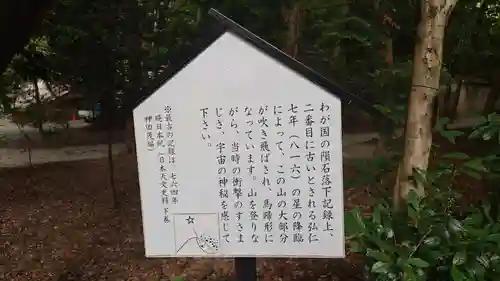 わが国の隕石落下記録上、
二番目に古いとされる弘仁
七年（八一六）の星の降臨
によって、この山の大部分
が吹き飛ばされ、馬蹄形に
なっています。山を登りな
がら、当時の衝撃のすさま
じさ、宇宙の神秘を感じて
下さい。
※最古の記録は、七六四年
瑞日本紀、（日本天文史料 下巻
神田茂編）